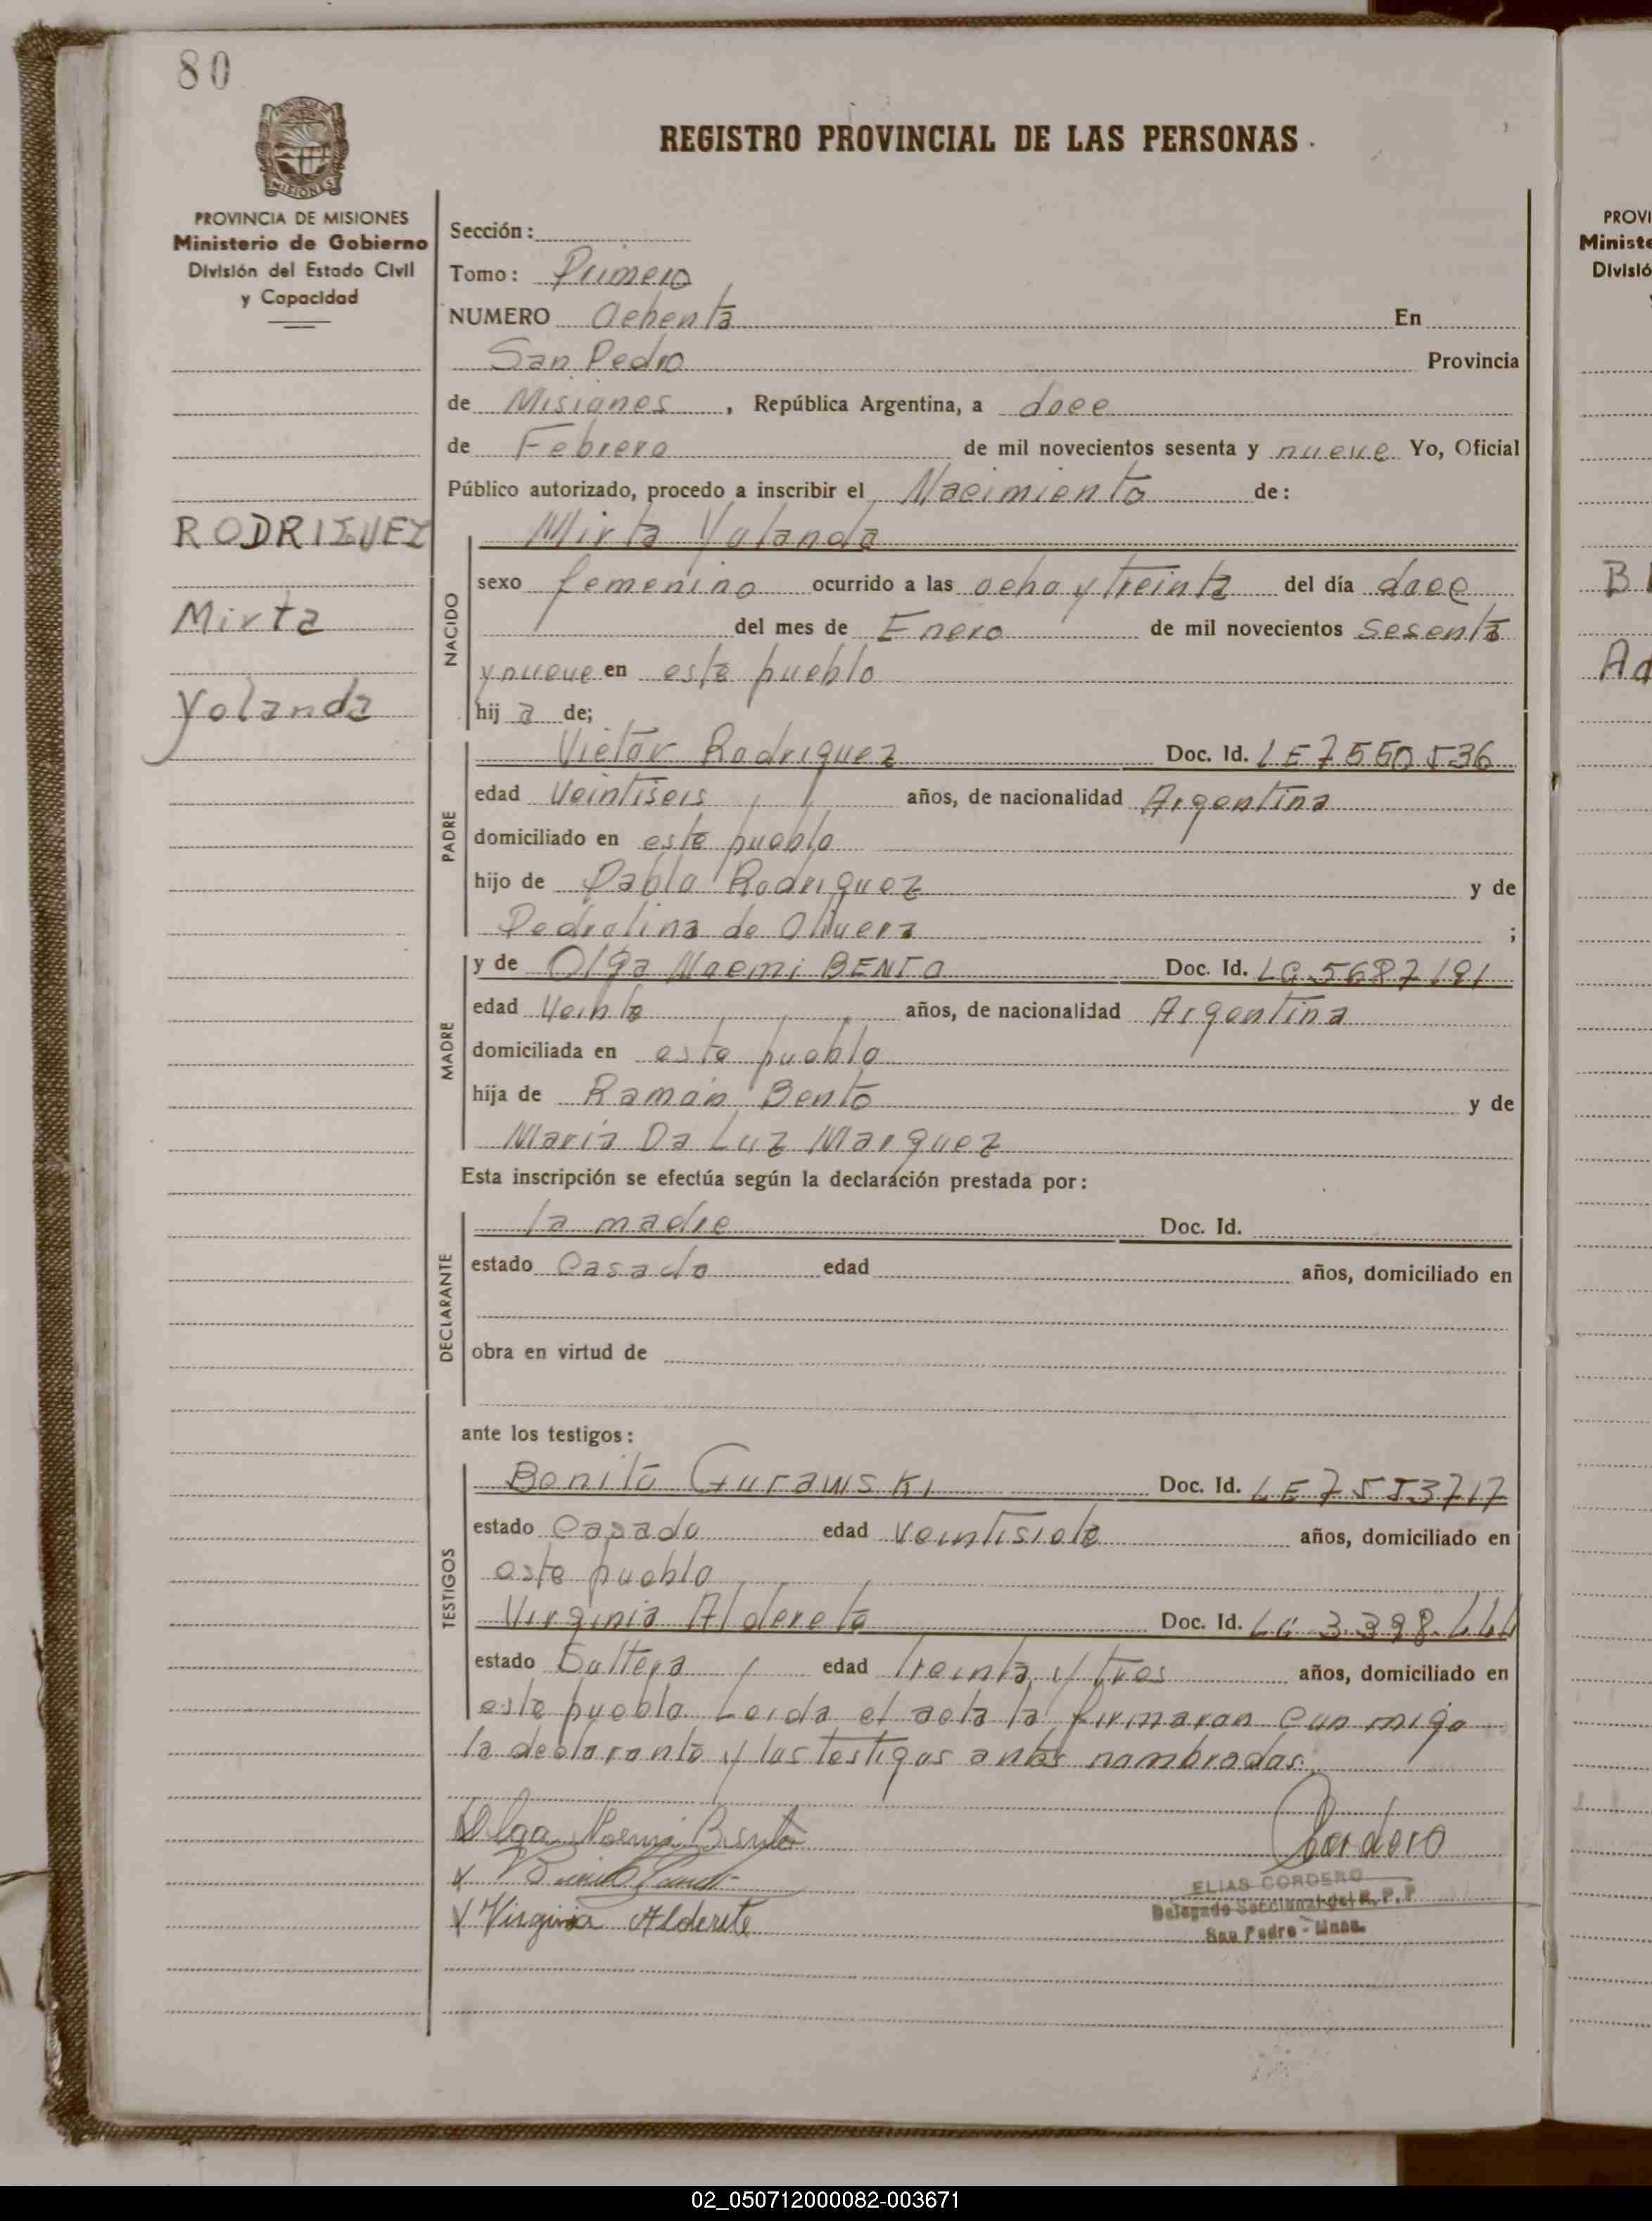 80
REGISTRO PROVINCIAL DE LAS PERSONAS
MISIONES
PROVINCIA DE MISIONES
Ministerio de Gobierno
División del Estado Civil
y Capacidad
RODRIGUEZ
Mirta
Yolanda
Sección:
Tomo: Primero
NUMERO Ochenta En
San Pedro Provincia
de Misiones, República Argentina, a doce
de Febrero de mil novecientos sesenta y nueve Yo, Oficial
Público autorizado, procedo a inscribir el Nacimiento de:
Mirta Yolanda
NACIDO
sexo femenino ocurrido a las ocho y treinta del día doce
del mes de Enero de mil novecientos sesenta
y nueve en este pueblo
hij a de;
PADRE
Victor Rodriguez Doc. Id. LE 7550536
edad Veintiseis años, de nacionalidad Argentina
domiciliado en este pueblo
hijo de Pablo Rodriguez y de
Pedrolina de Olivera ;
MADRE
y de Olga Noemi BENTO Doc. Id. LC 5687191
edad Veinte años, de nacionalidad Argentina
domiciliada en este pueblo
hija de Ramón Bento y de
Maria Da Luz Marquez
Esta inscripción se efectúa según la declaración prestada por:
DECLARANTE
la madre Doc. Id.
estado Casado edad años, domiciliado en
obra en virtud de
ante los testigos:
TESTIGOS
Benito Gurawski Doc. Id. LE 7553717
estado Casado edad veintisiete años, domiciliado en
este pueblo
Virginia Alderete Doc. Id. LC 3.398.444
estado Soltera edad treinta y tres años, domiciliado en
este pueblo Leida el acta la firmaron con migo
la declarante y los testigos antes nombrados.
Olga Noemi Bento
Cordero
ELIAS CORDERO
Delegado Seccional del R. P. P
San Pedro - Mnes.
x
x Virginia Alderete
PROVI
Ministe
Divisió
B
Ad
02_050712000082-003671